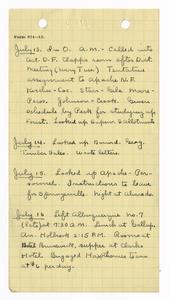 Form 874-16.
July 13. In O. A.M. - Called into
Act. D.F. Clapp's room after Dist
Meeting (every Tues.) Tentative
assignment to Apache N.F.
Kerchu - Coc. Star - Gila. Moore -
Pecos. Johnson - Coch. Gave
schedule by Pack for studying up
Forest. Looked up Supern & allotments
July 14. Looked up Bound. Reag.
Timber Sales. Wrote letters.
July 15. Looked up Apache - Per-
sonnel. Instructions to leave
for Springerville. Night at Alvarado.
July 16 Left Albuquerque no. 7
7:30 A.M. Lunch at Gallup.
Arr. Holbrook 2:15 P.M. Rooms at
Hotel Brunswick, supper at Clarks
Hotel. Engaged team
at $6 per day.